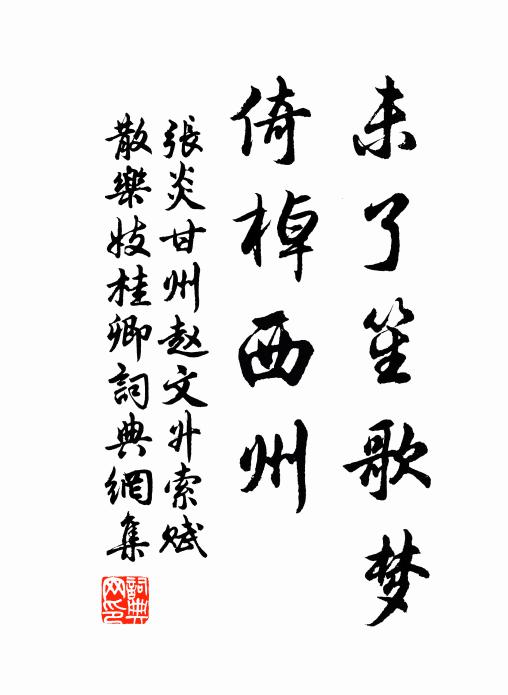 未了笙歌梦
倚棹西州
張炎甘州赵文升索赋
散樂妓桂卿詞典網集
詞典网印